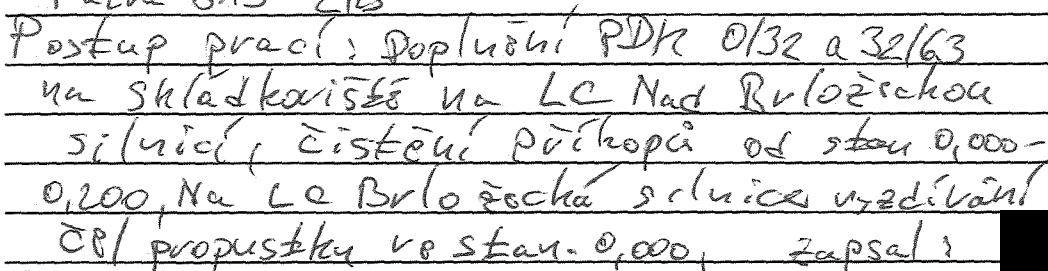 Postup prací: Doplnění PDK 0/32 a 32/63
na skládkoviště na LC Nad Brložeckou
silnicí, čistění příkopů od stan 0,000-
0,200, Na LC Brložecká silnice vyzdívání
čel propustku ve stan. 0,000, zapsal: